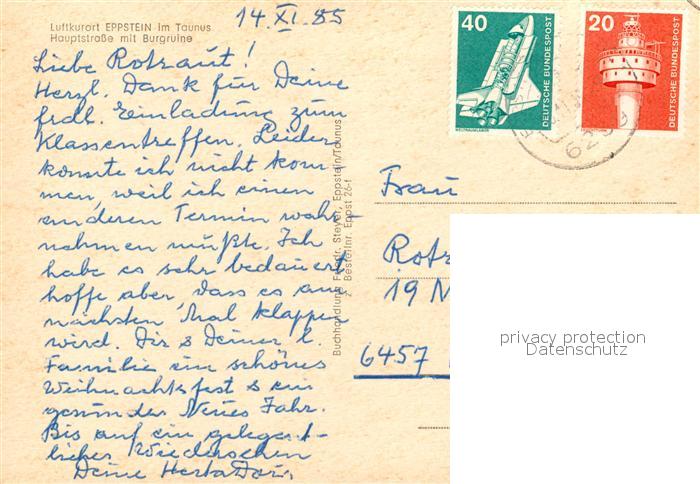 14.XI.85
Luftkurort EPPSTEIN im Taunus
Hauptstraße mit Burgruine
Liebe Rotraut!
Herzl. Dank für Deine
frdl. Einladung zum
Klassentreffen. Leider
konnte ich nicht kom-
men, weil ich einen
anderen Termin wahr-
nehmen mußte. Ich
habe es sehr bedauert
hoffe aber, dass es am
nächsten Mal klappen
wird. Dir & Deiner l.
Familie ein schönes
Weihnachtsfest & ein
gesundes Neues Jahr.
Bis auf ein gelegent-
liches Wiedersehen
Deine Herta
Buchhandlung Steyer, Eppstein/Taunus
Bestellnr. Eppst 26-f
40
DEUTSCHE BUNDESPOST
WELTRAUMLABOR
20
DEUTSCHE BUNDESPOST
Frau
19
6457
privacy protection
Datenschutz